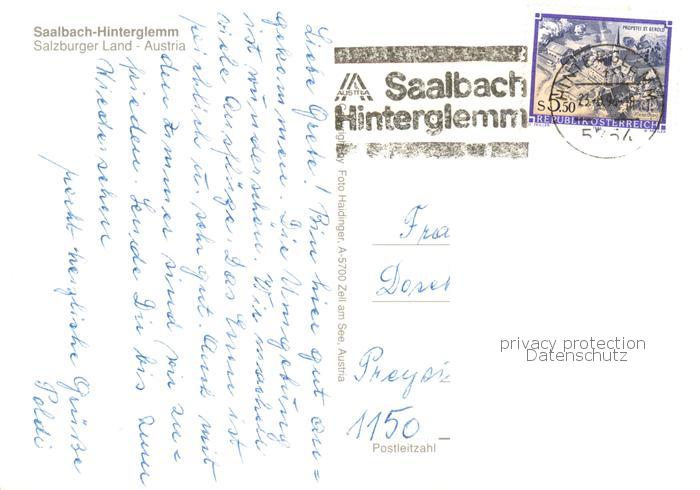 Saalbach-Hinterglemm
Salzburger Land - Austria
Liebe Grete! Bin hier gut an=
gekommen. Die Umgebung
ist wunderschön. Wir machen
viele Ausflüge. Das Essen ist
reichlich u. sehr gut. Auch mit
den Zimmer sind wir zu=
frieden. Sende Dir bis zum
Wiedersehen
recht herzliche Grüße
Poldi
Foto Haidinger, A-5700 Zell am See, Austria
AUSTRIA
Saalbach
Hinterglemm
PROPSTEI ST. GEROLD
S 5.50
REPUBLIK ÖSTERREICH
Fra
Preysi
1150
Postleitzahl
privacy protection
Datenschutz